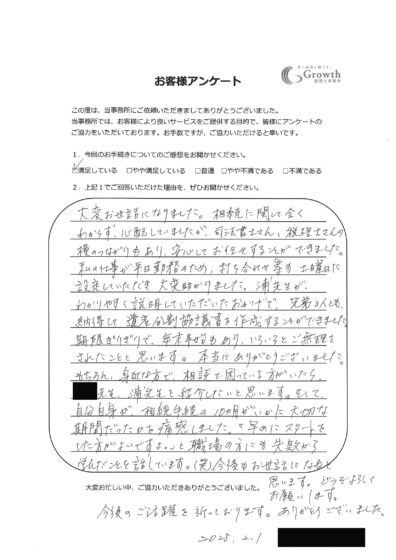 Growth
税理士事務所
お客様アンケート
この度は、当事務所にご依頼いただきましてありがとうございました。
当事務所では、お客様により良いサービスをご提供する目的で、皆様にアンケートの
ご協力をいただいております。お手数ですが、ご協力いただけると幸いです。
1．今回のお手続きについてのご感想をお聞かせください。
☑満足している □やや満足している □普通 □やや不満である □不満である
2．上記1でご回答いただけた理由を、ぜひお聞かせください。
大変お世話になりました。相続に関して全く
わからず、心配していましたが、司法書士さん、税理士さんの
横のつながりもあり、安心してお任せすることができました。
私の仕事が平日勤務のため、打ち合わせ等も土曜日に
設定していただき大変助かりました。浦先生が、
わかりやすく説明していただいたおかげで、兄弟3人とも、
納得して遺産分割協議書を作成することができました。
期限ぎりぎりで、年末年始もあり、いろいろとご無理を
されたことと思います。本当にありがとうございました。
もちろん、身近な方で、相談で困っている方がいたら、
先生、浦先生を紹介したいと思います。そして、
自分自身が、相続手続の10ヶ月がいかに大切な
期間だったかを痛感しました。“早めにスタートを
した方がよいですよ。”と職場の方にも失敗から
学んだことを話しています。(笑)今後もお世話になると
思います。どうぞよろしく
お願いします。
大変お忙しい中、ご協力いただきありがとうございました。
今後のご活躍を祈っております。ありがとうございました。
2025.2.1